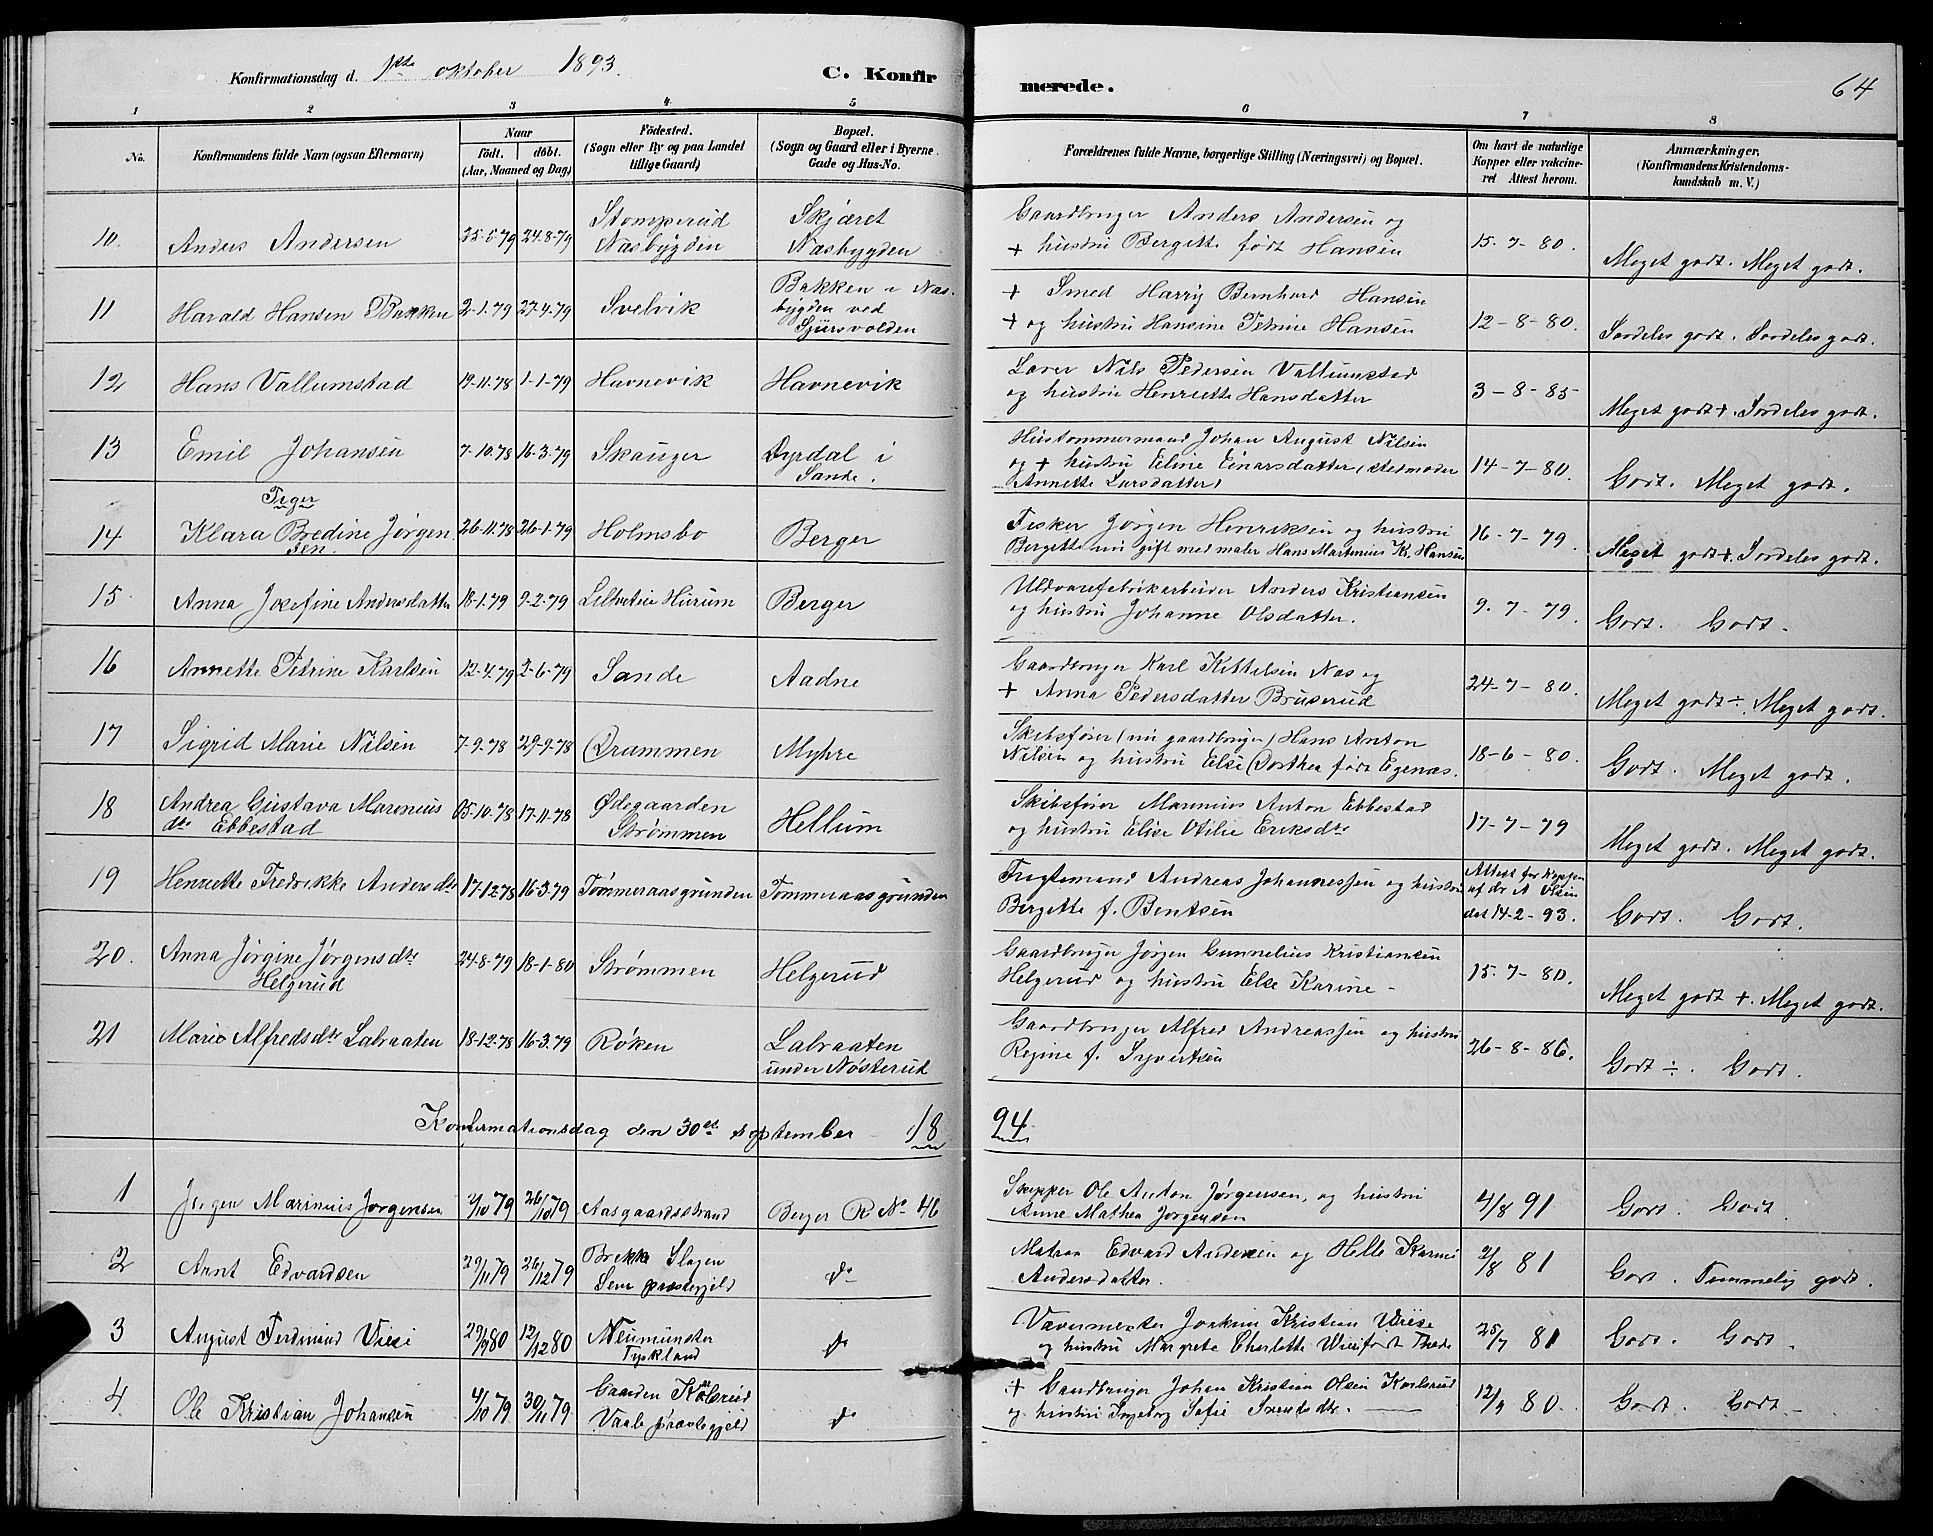 Konfirmationsdag d. 1ste oktober 1893. C. Konfirmerede. 64
1 2 3 4 5 6 7 8
No. Konfirmandens fulde Navn (ogsaa Efternavn) Naar født. døbt. (Aar, Maaned og Dag) Födested. (Sogn eller By og paa Landet tillige Gaard) Bopæl. (Sogn og Gaard eller i Byerne Gade og Hus-No. Forældrenes fulde Navne, borgerlige Stilling (Næringsvei) og Bopæl. Om havt de naturlige Kopper eller vakcineret Attest herom. Anmærkninger, (Konfirmandens Kristendomskundskab m. V.)
10. Anders Andersen 25-5-79 24-8-79 Stomperud Næsbygden Skjæret Næsbygden Gaardbruger Anders Andersen og
+ hustru Bergitte født Hansen 15-7-80. Meget godt. Meget godt.
11 Harald Hansen Bakken 2-1-79 27-4-79 Svelvik Bakken i Næsbygden ved Sjursvolden + Smed Harry Bernhard Hansen
+ og hustru Hansine Petrine Hansen 12-8-80. Særdeles godt. Særdeles godt.
12 Hans Vallumstad 19-11-78 1-1-79 Havnevik Havnevik Lærer Nils Pedersen Vallumstad
og hustru Henriette Hansdatter 3-8-85 Meget godt +. Særdeles godt.
13 Emil Johansen 7-10-78 16-3-79 Skauger Dyrdal i Sande. Hustømmermand Johan August Nilsen
og + hustru Eline Einarsdatter (stedmoder
Annette Larsdatter) 14-7-80. Godt. Meget godt.
Teger
14 Klara Bredine Jørgensen 26-11-78 26-1-79 Holmsbo Berger Fisker Jørgen Henriksen og hustru
Bergette nu gift med maler Hans Martinius K. Hansen 16-7-79. Meget godt +. Særdeles godt.
15 Anna Josefine Andersdatter 18-1-79 9-2-79 Hurum Berger Uldvarefabrikarbeider Anders Kristiansen
og hustru Johanne Olsdatter. 9-7-79. Godt. Godt.
16 Annette Petrine Karlsen 12-4-79 2-6-79 Sande Aadne Gaardbruger Karl Kittelsen Næs og
+ Anna Pedersdatter Bruserud 24-7-80. Meget godt ÷. Meget godt.
17 Sigrid Marie Nilsen 7-9-78 29-9-78 Drammen Myhre Skibsfører (nu gaardbruger) Hans Anton
Nilsen og hustru Else Dorthea født Egenæs. 18-6-80. Godt. Meget godt.
18 Andrea Gustava Marenius dtr Ebbestad 05-10-78 17-11-78 Ødegaarden Strømmen Hellum Skibsfører Marinius Anton Ebbestad
og hustru Elise Otilie Eriksdtr 17-7-79 Meget godt. Meget godt.
19 Henriette Fredrikke Andersdtr 17-12-78 16-3-79 Tømmeraasgrunden Tømmeraasgrunden Fragtemand Andreas Johannessen og hustru
Bergette f. Bentsen Attest for koppen af dr A Olsen dat 14-2-93. Godt. Godt.
20. Anna Jørgine Jørgensdtr Helgerud 24-8-79 18-1-80 Strømmen Helgerud Gaardbruger Jørgen Gunnelius Kristiansen
Helgerud og hustru Else Karine - 15-7-80. Meget godt +. Meget godt.
21 Marie Alfredsdtr Labraaten 18-12-78 16-3-79 Røken Labraaten under Nøsterud Gaardbruger Alfred Andreassen og hustru
Regine f. Syvertsen 26-8-86. Godt ÷. Godt.
Konfirmationsdag den 30te september 18 94
1 Jørgen Marinius Jørgensen 2/10 79 26/10 79 Aasgaardsstrand Berger R No 46 Skipper Ole Anton Jørgensen, og hustru
Anne Mathea Jørgensen 4/8 91 Godt. Godt.
2 Arnt Edvardsen 29/11 79 26/12 79 Brekke Slagen Sem præstegjeld do Matros Edvard Andersen og Helle Karine
Andersdatter. 2/8 81 Godt. Temmelig godt.
3 August Ferdinand Wiese 29/9 80 12/12 80 Neumünster Tyskland do Vævermester Joakim Kristian Wiese
og hustru Margrete Charlotte Wiese født Thede 25/7 81 Godt. Godt.
4 Ole Kristian Johansen 4/10 79 30/11 79 Gaarden Vaale præstegjeld do + Gaardbruger Johan Kristian Olsen
og hustru Ingeborg Sofie 12/9 80. Godt. Godt -